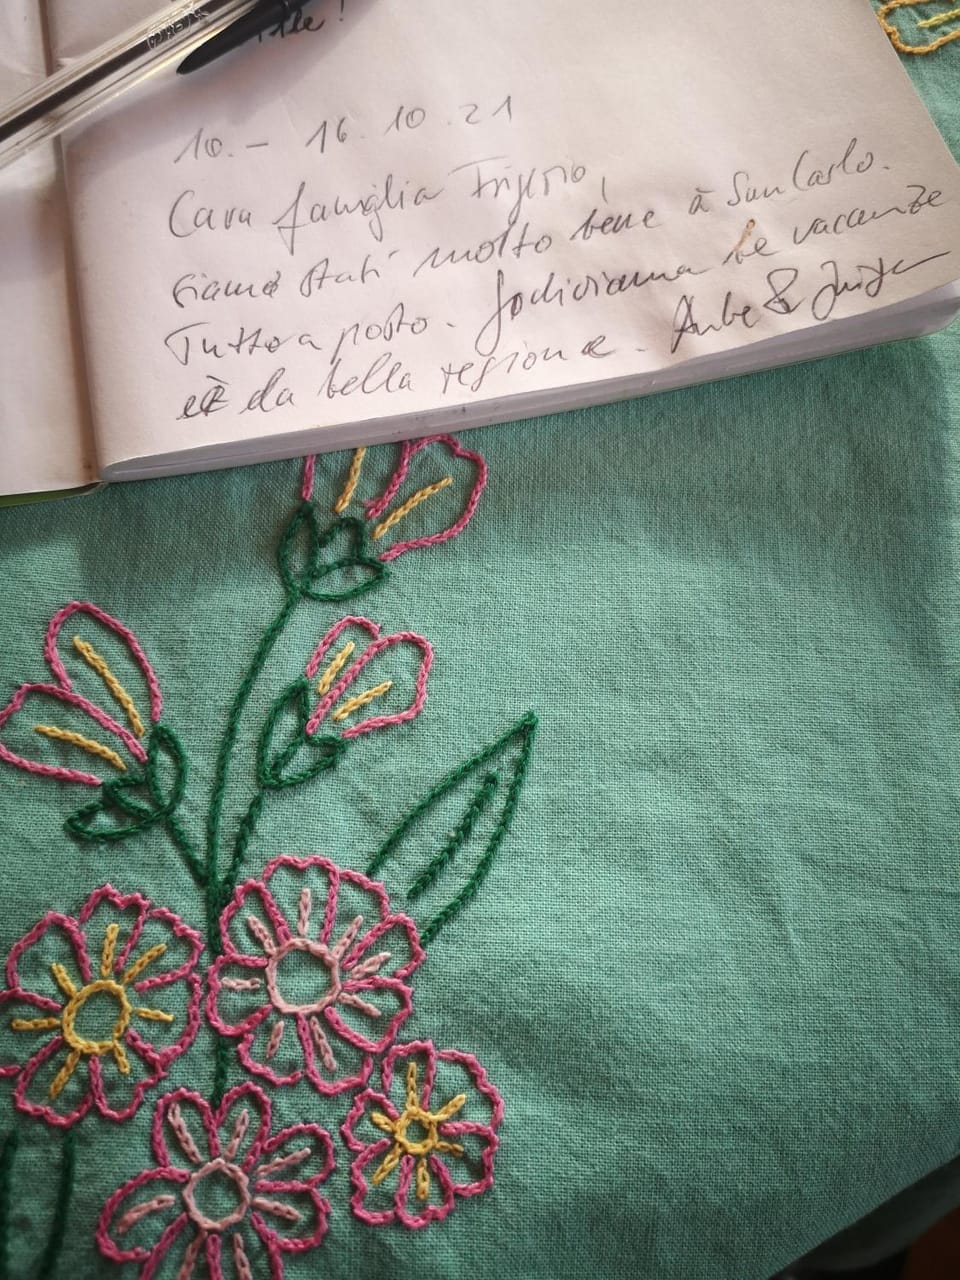 10. - 16.10.21
Cara famiglia Frigerio,
siamo stati molto bene à San Carlo.
Tutto a posto. le vacanze
e da bella regione. &